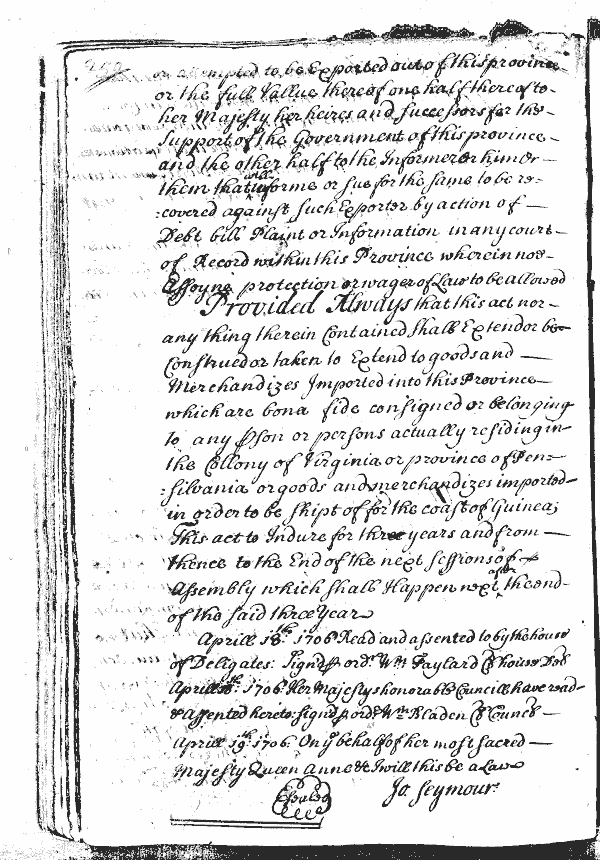 or attempted to be Exported out of this province
or the full Vallue thereof one half thereof to
her Majesty her heires and successors for the
Support of the Government of this province
and the other half to the Informer or him or
them that will informe or sue for the same to be re=
=covered against such Exporter by action of
Debt bill Plaint or Information in any court
of Record within this Province wherein noe
Essoyne protection or wager of Law to be allowed
Provided Always that this act nor
any thing therein Contained shall Extend or be
Construed or taken to Extend to goods and
Merchandizes Imported into this Province
which are bona fide consigned or belonging
to any pson or persons actually residing in
the Collony of Virginia or province of Pen=
=silvania or goods and merchandizes imported
in order to be shipt of for the coast of Guinea;
This act to Indure for three years and from
thence to the End of the next sessions of
Assembly which shall Happen next after the end
of the said three Year
Aprill 18th 1706 Read and assented to by the house
of Deligates: Signd p ordr Wm Taylard Cl house Del
Aprill 18th 1706. Her Majestys honorable Councill have read
& Assented hereto: signd p ordr Wm Bladen Cl Counc
Aprill 19th 1706. On ye behalf of her most sacred
Majesty Queen Anne &c I will this be a Law
Jo Seymour